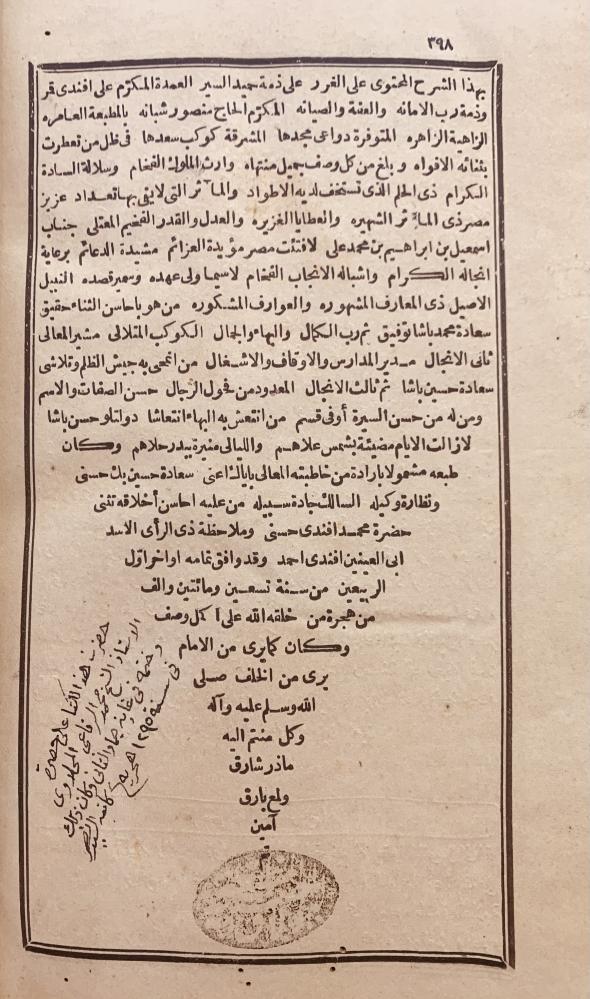 ٣٩٨
بهذا الشرح المحتوى على الغرر على ذمة حميد السير العمدة المكرّم على افندى قر
وذمة رب الامانه والعفة والصيانه المكرّم الحاج منصور شبانه بالمطبعة العامره
الزاهية الزاهره المتوفرة دواعى مجدها المشرقة كوكب سعدها فى ظل من تعطرت
بثنائه الافواه وبلغ من كل وصف جميل منتهاه وارث الملوك الفخام وسلالة السادة
الكرام ذى الحلم الذى تستخف لديه الاطواد والمآثر التى لا يفى بها تعداد عزيز
مصر ذى المآثر الشهيره والعطايا الغزيره والعدل والقدر الفخيم المعتلى جناب
اسمعيل بن ابراهيم بن محمد على لافتئت مصر مؤيدة العزائم مشيدة الدعائم برعاية
انجاله الكرام واشباله الانجاب الفخام لاسيما ولى عهده وسمير قصده النبيل
الاصيل ذى المعارف المشهوره والعوارف المشكوره من هو باحاسن الثناء حقيق
سعادة محمد باشا توفيق ثم رب الكمال والبهاء والجمال الكوكب المتلالى مشير المعالى
ثانى الانجال مدير المدارس والاوقاف والاشغال من انمحى به جيش الظلم وتلاشى
سعادة حسين باشا ثم ثالث الانجال المعدود من فحول الرجال حسن الصفات والاسم
ومن له من حسن السيرة أوفى قسم من انتعش به البهاء انتعاشا دولتلو حسن باشا
لازالت الايام مضيئة بشمس علاهم والليالى منيرة ببدر حلاهم وكان
طبعه مشمولا بادارة من خاطبته المعالى باياك اعنى سعادة حسين بك حسنى
ونظارة وكيله السالك جادة سبيله من عليه احاسن أخلاقه تثنى
حضرة محمد افندى حسنى وملاحظة ذى الرأى الاسد
ابى العينين افندى احمد وقد وافق تمامه اواخر اوّل
الربيعين من سنة تسعين ومائتين والف
من هجرة من خلقه الله على اكمل وصف
وكان كما يرى من الامام
يرى من الخلف صلى
الله وسلم عليه وآله
وكل منتم اليه
ماذر شارق
ولمع بارق
آمين
حضرت هذا الكتاب على حضرة
الاستاذ الشيخ محمد الرفاعى
وختمته فى غاية جماد الثانى وكان ذلك
فى سنة ١٢٩٥ هجريه